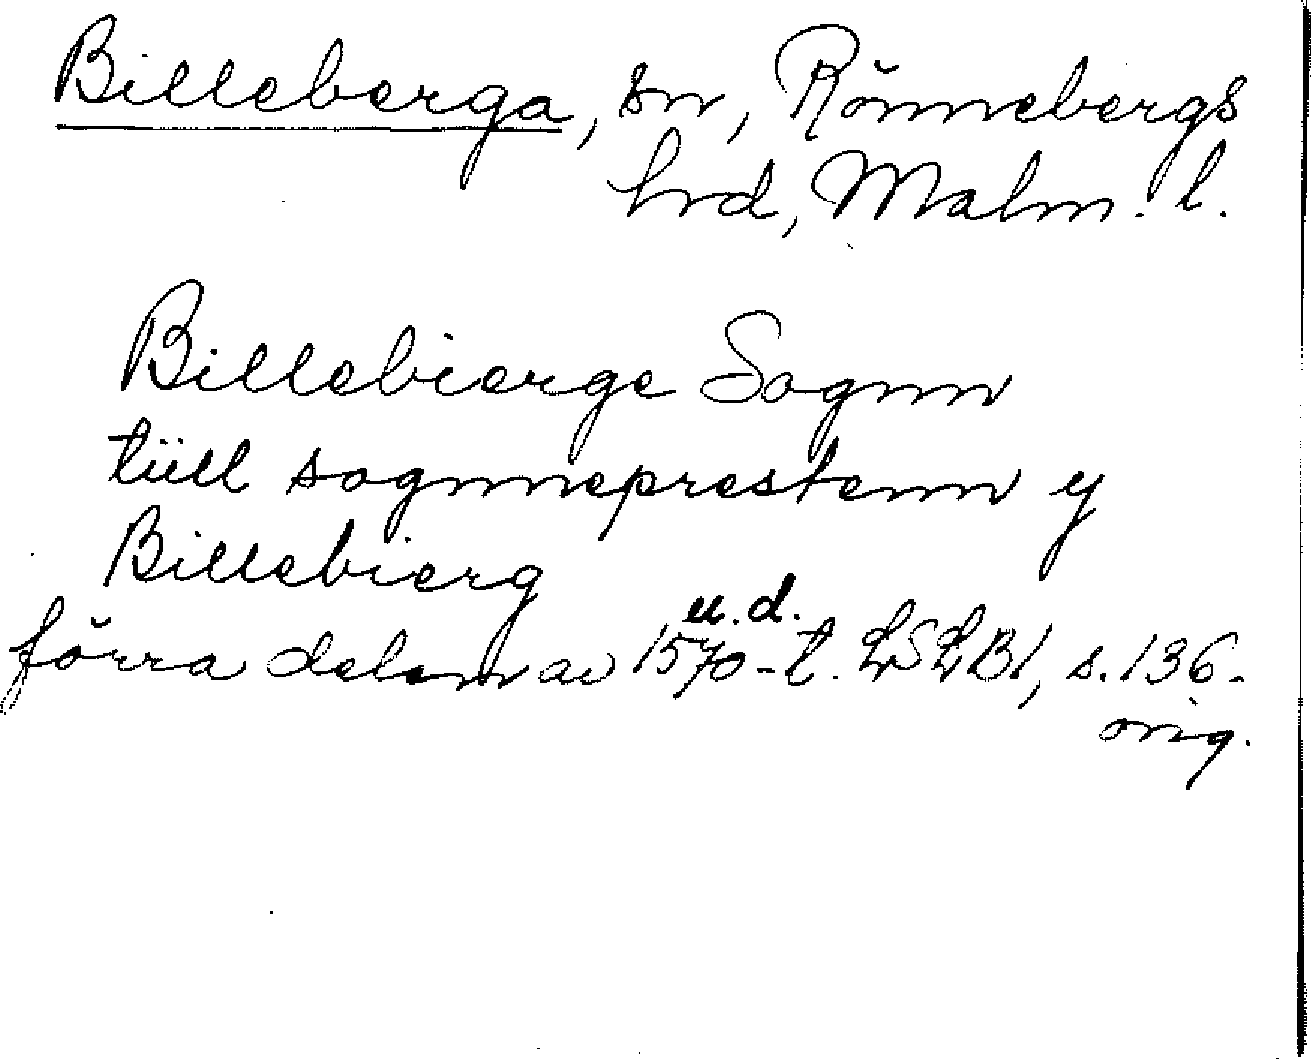 Billeberga, sn, Rönnebergs
hrd, Malm. l.
Billebierge Sognn
tüll sognneprestenn y
Billebierg
u.d.
förra delen av 1570-t. LSLB1, s. 136.
orig.